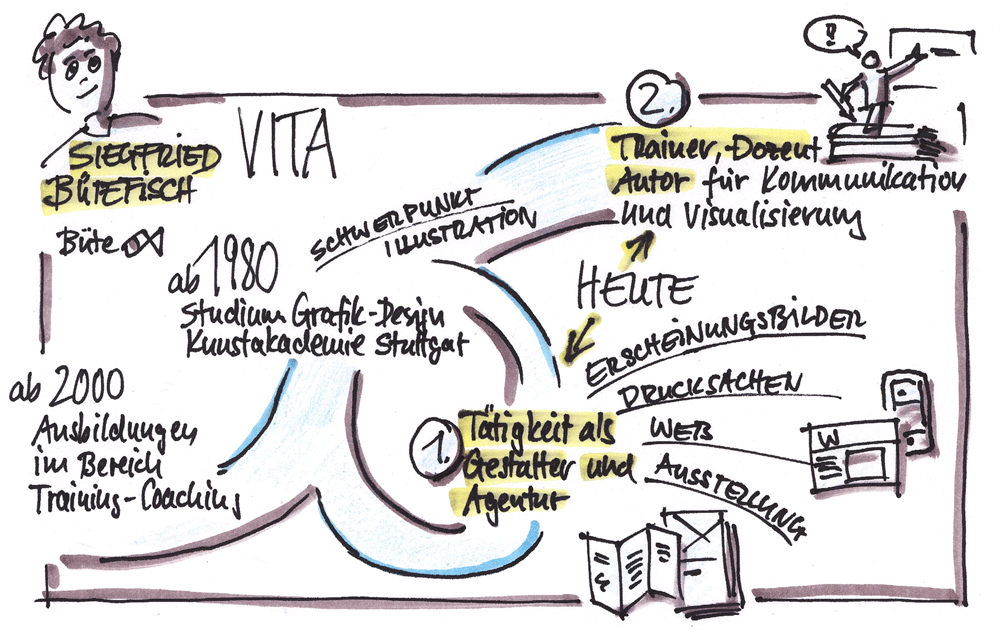 SIEGFRIED
BÜTEFISCH
VITA
Büte
ab 1980
Studium Grafik-Design
Kunstakademie Stuttgart
ab 2000
Ausbildungen
im Bereich
Training-Coaching
SCHWERPUNKT
ILLUSTRATION
!?
2.
Trainer, Dozent
Autor für Kommunikation
und Visualisierung
HEUTE
1.
Tätigkeit als
Gestalter und
Agentur
ERSCHEINUNGSBILDER
DRUCKSACHEN
WEB
AUSSTELLUNG
W